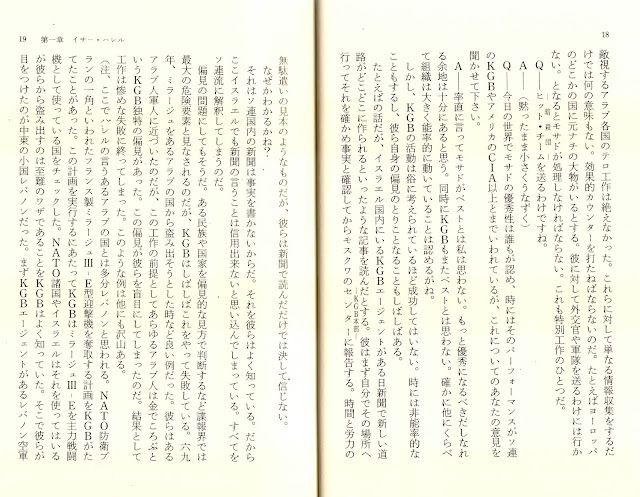 18
敵視するアラブ各国のテロ工作は絶えなかった。これらに対して単なる情報収集をするだ
けでは何の意味もない。効果的カウンターを打たねばならないのだ。たとえばヨーロッパ
のどこかの国に元ナチの大物がいるとする。彼に対して外交官や軍隊を送るわけには行か
ない。となるとモサドが処理しなければならない。これも特別工作のひとつだ。
Q――ヒット・チームを送るわけですね。
A――（黙ったまま小さくうなずく）
Q――今日の世界でモサドの優秀性は誰もが認め、時にはそのパーフォーマンスがソ連
のKGBやアメリカのCIA以上とまでいわれているが、これについてのあなたの意見を
聞かせて下さい。
A――率直に言ってモサドがベストとは私は思わない。もっと優秀になるべきだしなれ
る余地は十分にあると思う。同時にKGBもまたベストとは思わない。確かに他にくらべ
て組織は大きく能率的に動いていることは認めるがね。
しかし、KGBの活動は俗に考えられているほど成功してはいない。時には非能率的な
こともするし、彼ら自身の偏見のとりことなることもしばしばある。
たとえばの話だが、イスラエル国内にいるKGBエージェントがある日新聞で新しい道
路がどこどこに作られるといったような記事を読んだとする。彼はまず自分でその場所へ
行ってそれを確かめ事実と確認してからモスクワのセンターに報告する。時間と労力の
KGB本部
19 第一章 イサー・ハレル
無駄遣いの見本のようなものだが、彼らは新聞で読んだだけでは決して信じない。
なぜかわかるかね？
それはソ連国内の新聞は事実を書かないからだ。それを彼らはよく知っている。だから
ここイスラエルでも新聞の言うことは信用出来ないと思い込んでしまっている。すべてを
ソ連流に解釈してしまうのだ。
偏見の問題にしてもそうだ。ある民族や国家を偏見的な見方で判断するなど諜報界では
最大の危険要素と見なされるのだが、KGBはしばしばこれをやって失敗している。六九
年、ミラージュをあるアラブの国から盗み出そうとした時など良い例だった。彼らはある
アラブ人軍人に近づいたのだが、この工作の前提としてあらゆるアラブ人は金でころぶと
いうKGB独特の偏見があった。この偏見が彼らを盲目にしてしまったのだ。結果として
工作は惨めな失敗に終ってしまった。このような例は他にも沢山ある。
（注、ここでハレルの言うあるアラブの国とは多分レバノンと思われる。NATO防衛プ
ランの一角といわれたフランス製ミラージュⅢ―E型迎撃機を奪取する計画をKGBがた
てたことがあった。この計画を実行するにあたってKGBはミラージュⅢ―Eを主力戦闘
機として使っている国をチェックした。NATO諸国やイスラエルはそれを使ってはいる
が彼らから盗み出すのは至難のワザであることをKGBはよく知っていた。そこで彼らが
目をつけたのが中東の小国レバノンだった。まずKGBエージェントがあるレバノン空軍